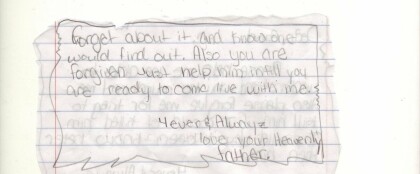 Forget about it and knowone
would find out. Also you are
forgiven Just help him intill you
are ready to come live with me.
4ever & Alwayz
love your Heavenly
father